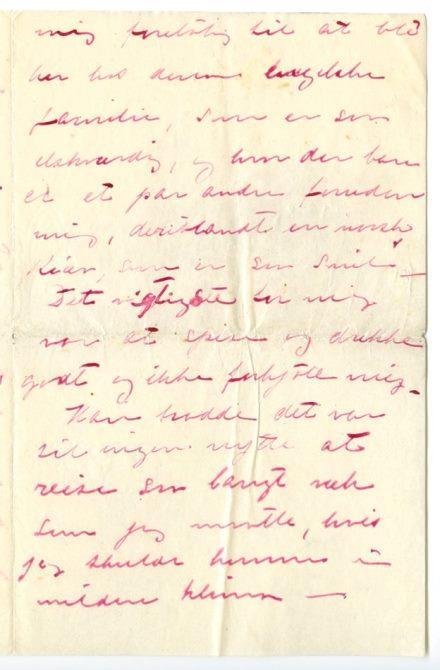 mig foreløbig til at bli
her hos denne engelske
familie, som er saa
elskværdig, og hvor der bare
er et par andre foruden
mig, deriblandt en norsk
som er saa snil –
Det vigtigste for mig
var at spise og drikke
godt og ikke forkjøle mig.
Han trodde det var
til ingen nytte at
reise saa langt væk
som jeg maatte, hvis
jeg skulde komme i
mildere klima —